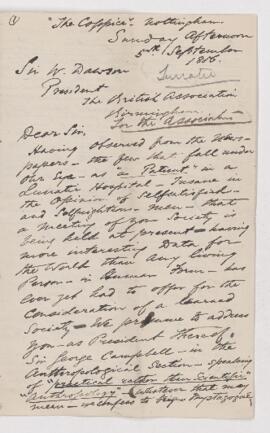 ①
"The Coppice". Nottingham.
Sunday Afternoon
5th September
1886.
Sir W. Dawson
Lunatic
President
The British Association
Birmingham.
For the Association
Dear Sir.
Having observed from the News-
papers - the few that fall under
our Eye - as "a Patient" in a
Lunatic Hospital - Insane in
the Opinion of
and men - that
a meeting of your Society is
being held at present - having
more interesting Data for
the World than any living
Person - in Human Form - has
ever yet had to offer for the
Consideration of a learned
Society - We presume to address
you - as President thereof.
Sir George Campbell - in the
Anthropological Section - speaking
of "practical rather than Scientific
Anthropology" - whatever that may
mean - we confess to being